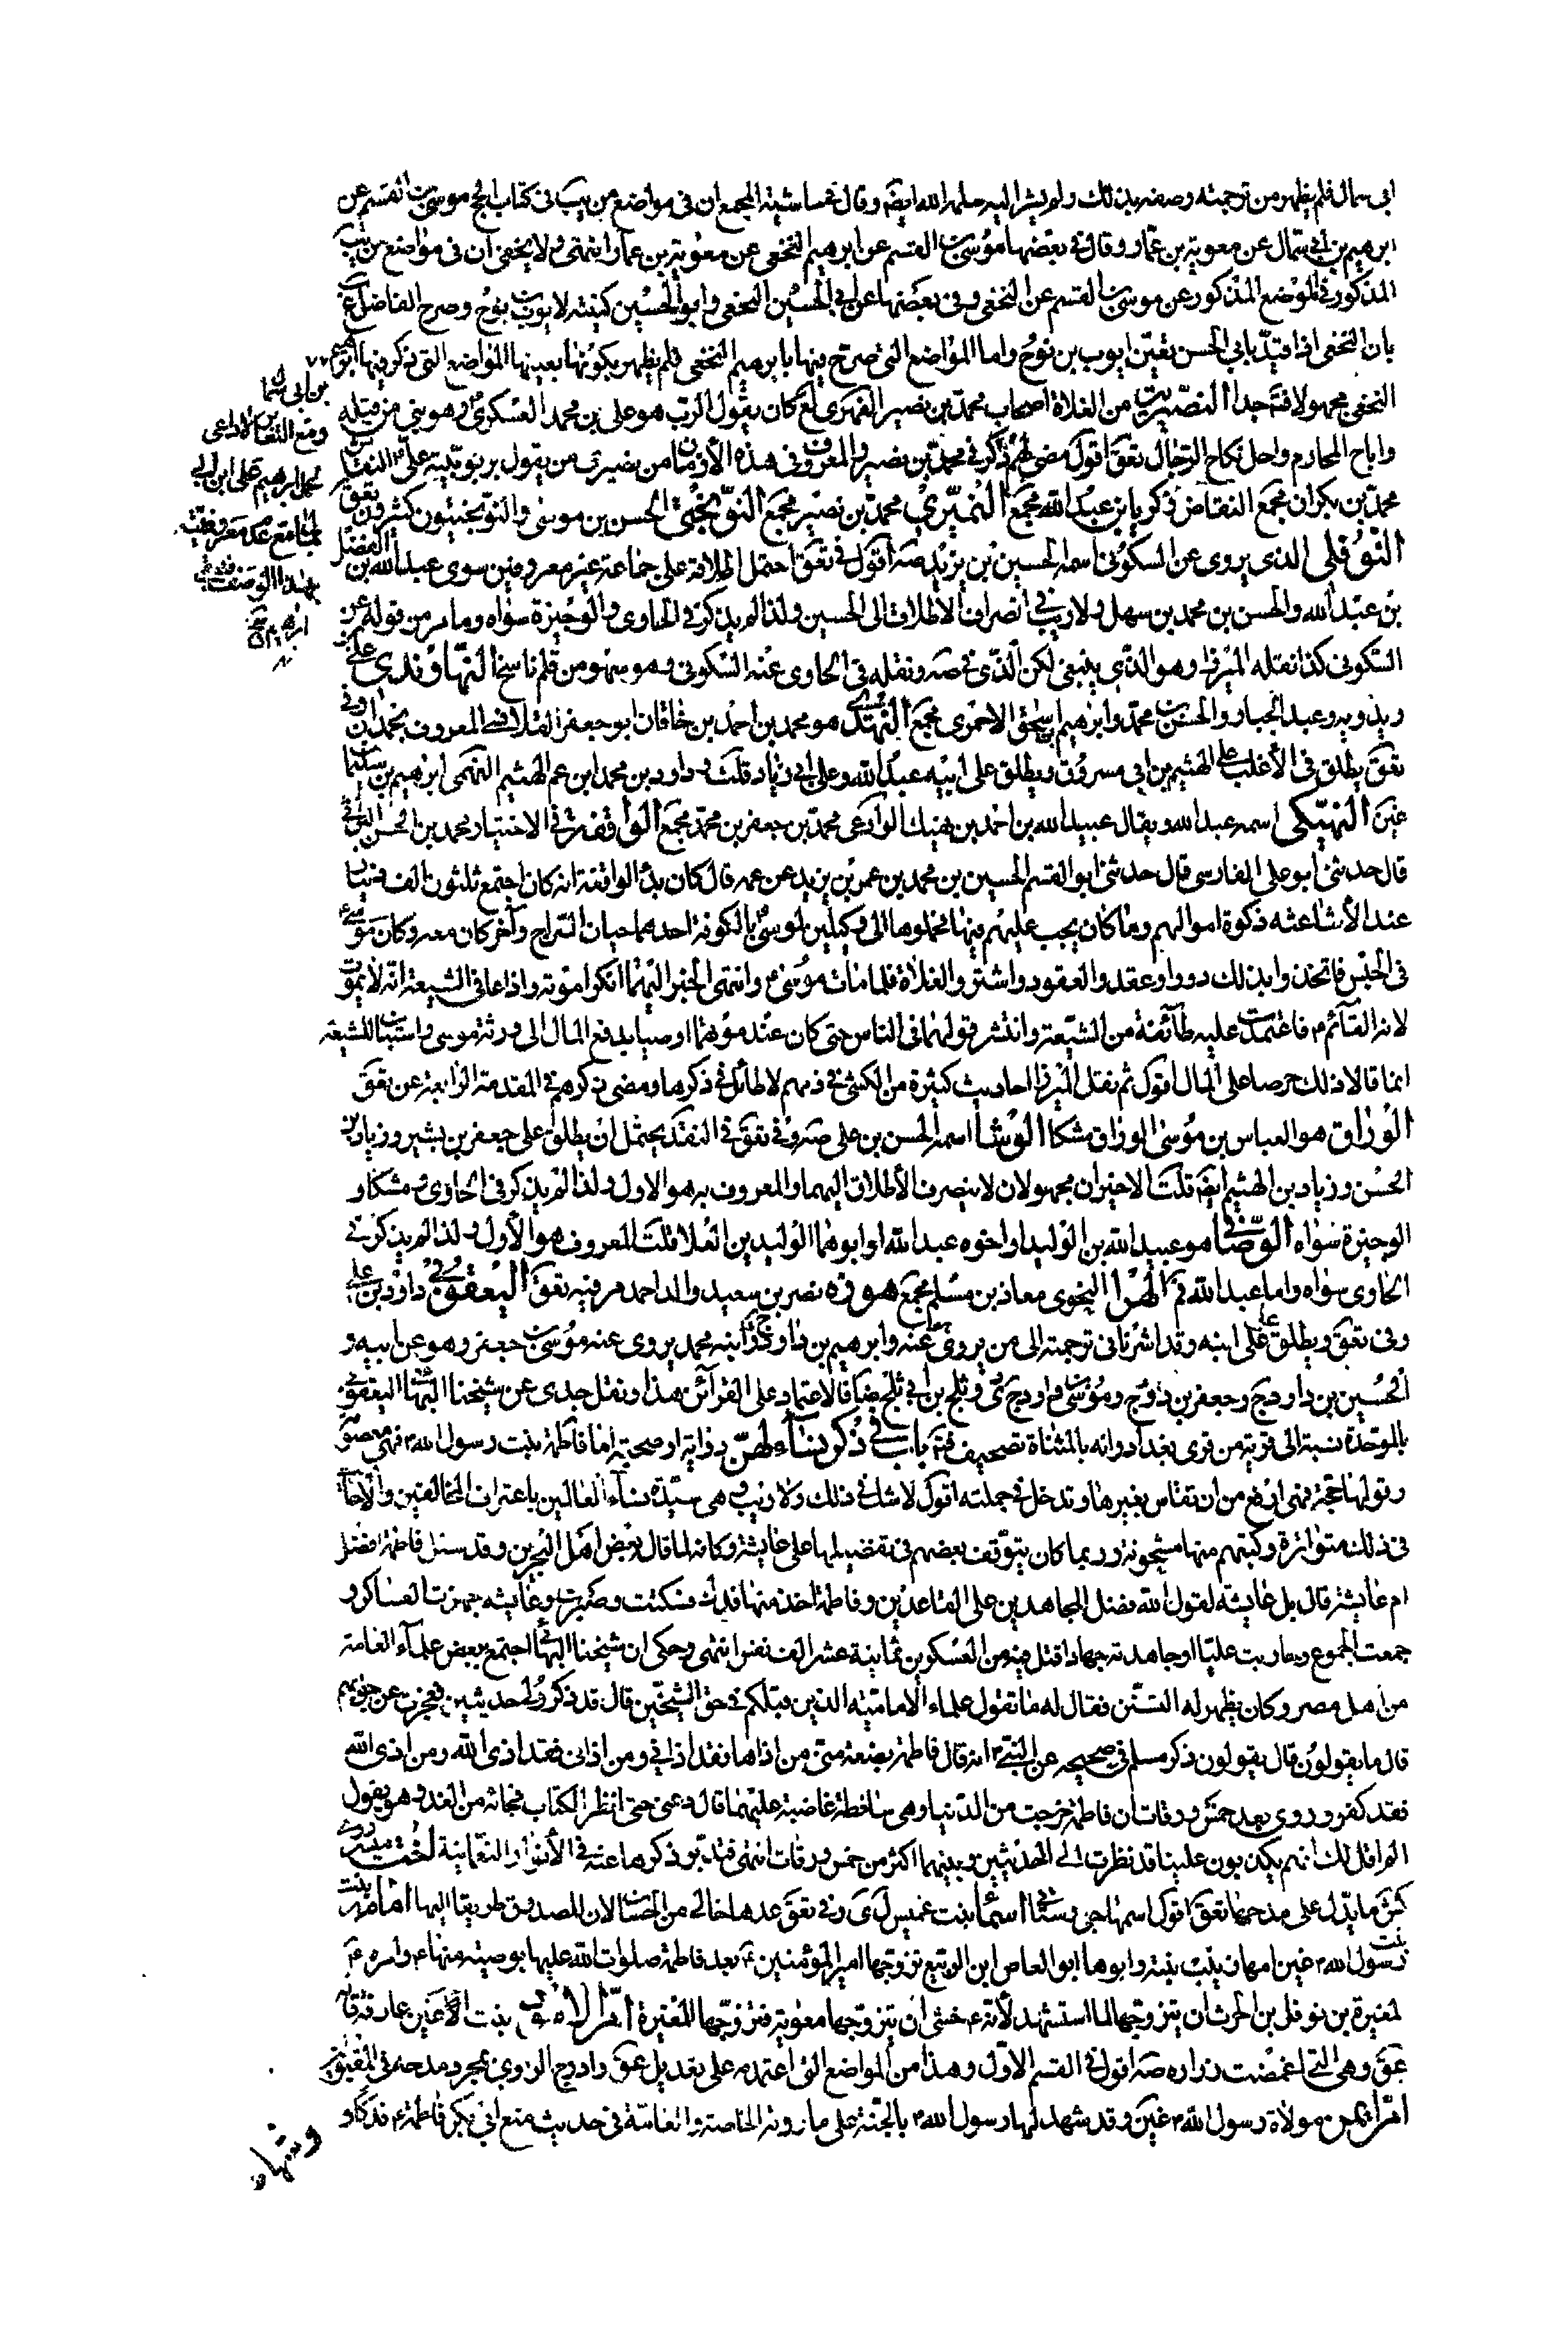 ابى سمال فلم يظهر من ترجمته وصفه بذلك ولم يشر اليه سلمه الله ايضا وقال فى حاشية المجمع ان فى مواضع من يب فى كتاب الحج موسى بن القسم عن
ابرهيم بن ابى سمال عن معوية بن عمار وقال فى بعضها موسى بن القسم عن ابرهيم النخعى عن معوية بن عمار انتهى ولا يخفى ان فى مواضع من يب
المذكور فى الموضع المذكور عن موسى بن القسم عن النخعى وفى بعضها عن ابى الحسين النخعى وابو الحسين كنيته لايوب بن نوح وصرح الفاضل
بان النخعى اذا قيد بابى الحسن تعين ايوب بن نوح واما المواضع التى صرح فيها بابرهيم النخعى فلم يظهر بكونها بعينها المواضع التى ذكر فيها ابرهيم
النخعى مجهولا فتم جدا النصيرية من الغلاة اصحاب محمد بن نصير الفهرى لع كان يقول الرب هو على بن محمد العسكرى وهو نبى من قبله
واباح المحارم واحل نكاح الرجال تعق اقول مضى لهم ذكر فى محمد بن نصير والمعروف فى هذه الازمان من نصيرى من يقول بربوبية على النقاش
محمد بن بكران مجمع النقاض زكريا بن عبد الله مجمع النميرى محمد بن نصير مجمع النوبختى الحسن بن موسى والنوبختيون كثيرون تعق
النوفلى الذى يروى عن السكونى اسمه الحسين بن يزيد صه اقول فى تعق احتمل اطلاقه على جماعة غير معروفين سوى عبد الله بن الفضل
بن عبد الله والحسن بن محمد بن سهل ولا ريب فى انصراف الاطلاق الى الحسين ولذا لم يذكر فى الحاوى والوجيزة سواه وما مر من قوله عن
السكونى كذا نقله الميرزا وهو الذى ينبغى لكن الذى فى صه ونقله فى الحاوى عنه السكونى وهو سهو من قلم ناسخ النهاوندى على بن
ريذويه وعبد الجبار والحسن بن محمد وابرهيم بن اسحق الاحمرى مجمع النهدى هو محمد بن احمد بن خاقان ابو جعفر القلانسى المعروف بحمدان وفى
تعق يطلق فى الاغلب على الهيثم بن ابى مسروق ويطلق على ابنيه عبد الله وعلى ابى زياد قلت و داود بن محمد ابن عم الهيثم النهمى ابرهيم بن سليمان
غين النهيكى اسمه عبد الله ويقال عبيد الله بن احمد بن نهيك الوادعى محمد بن جعفر بن محمد مجمع الواقفة فى الاختيار محمد بن الحسن البراثى
قال حدثنى ابو على الفارسى قال حدثنى ابو القسم الحسين بن محمد بن عمر بن يزيد عن عمه قال كان بدؤ الواقفة انه كان اجتمع ثلثون الف دينار
عند الاشاعثة زكوة اموالهم وما كان يجب عليهم فيها فحملوها الى وكيلين لموسى بالكوفة احدهما حيان السراج وآخر كان معه وكان موسى
فى الحبس فاتخذوا بذلك دورا وعقدوا العقود واشتروا الغلاة فلما مات موسى وانتهى الخبر اليهما انكرا موته واذاعا فى الشيعة انه لا يموت
لانه القآئم فاعتمدت عليه طآئفة من الشيعة وانتشر قولهما فى الناس حتى كان عند موتهما اوصيا بدفع المال الى ورثة موسى واستبان للشيعة
انما قالا ذلك حرصا على المال اقول ثم نقل الميرزا احاديث كثيرة من الكشى فى ذمهم لا طائل فى ذكرها ومضى ذكرهم فى المقدمة الرابعة عن تعق
الوراق هو العباس بن موسى الوراق مشكا الوشا اسمه الحسن بن على صه وفى تعق فى النقد يحتمل ان يطلق على جعفر بن بشير وزياد بن
الحسن وزياد بن الهيثم ايضا قلت الاخيران مجهولان لا ينصرف الاطلاق اليهما والمعروف به هو الاول ولذا لم يذكر فى الحاوى ومشكا و
الوجيزة سواه الوصافى هو عبيد الله بن الوليد او اخوه عبد الله او ابوهما الوليد بن العلا قلت المعروف هو الاول ولذا لم يذكر فى
الحاوى سواه واما عبد الله فم الهرا النحوى معاذ بن مسلم مجمع هوذه نصر بن سعيد والد احمد مر فيه تعق اليعقوبى داود بن على
وفى تعق ويطلق على على ابنه وقد اشرنا فى ترجمته الى من يروى عنه وابرهيم بن داود وابنه محمد يروى عنه موسى بن جعفر وهو عن ابيه و
الحسين بن داود وجعفر بن داود وموسى بن داود وثلج بن ابى ثلج ايضا فالاعتماد على القرآئن هذا ونقل جدى عن شيخنا البهائى اليعقوبى
بالموحدة نسبة الى قرية من قرى بغداد وانه بالمثناة تصحيف فتم باب فى ذكر نسآء لهن رواية او صحبة اما فاطمة بنت رسول الله فهى معصومة
وقولها حجة فهى ارفع من ان تقاس بغيرها وتدخل فى جملته اقول لا شك فى ذلك ولا ريب وهى سيدة نسآء العالمين باعتراف المخالفين والاخبار
فى ذلك متواترة وكتبهم منها مشحونة وربما كان يتوقف بعضهم فى تفضيلها على عايشة وكانه لما قال بعض اهل البحرين وقد سئل فاطمة افضل
ام عايشة قال بل عايشة لقول الله فضل المجاهدين على القاعدين وفاطمة اخذ منها فدك فسكتت وصبرت وعايشة جهزت العساكر و
جمعت الجموع وحاربت عليا او جاهدته جهادا قتل فيه من العسكرين ثمانية عشر الف نفس انتهى وحكى ان شيخنا البهائى اجتمع ببعض علمآء العامة
من اهل مصر وكان يظهر له التسنن فقال له ما تقول علماء الامامية الذين قبلكم فى حق الشيخين قال قد ذكروا لى حديثين فعجزت عن جوابهم
قال ما يقولون قال يقولون ذكر مسلم فى صحيحه عن النبى انه قال فاطمة بضعة منى من اذاها فقد اذانى ومن اذانى فقد اذى الله ومن اذى الله
فقد كفر وروى بعد خمس ورقات ان فاطمة خرجت من الدنيا وهى ساخطة غاضبة عليهما قال دعنى حتى انظر الكتاب فجائه من الغد وهو يقول
الم اقل لك انهم يكذبون علينا قد نظرت الى الحديثين وبينهما اكثر من خمس ورقات انتهى فتدبر ذكرها عنه فى الانوار النعمانية اخت ميسر روى
كش ما يدل على مدحها تعق اقول اسمها حبى وستاتى اسمآ بنت عميس ل ى وفى تعق عدها خالى من الحسان لان للصدوق طريقا اليها امامة بنت
بنت رسول الله غين امها زينب بنته وابوها ابو العاص ابن الربيع تزوجها امير المؤمنين بعد فاطمة صلوات الله عليها بوصية منها وامره
لمغيرة بن نوفل بن الحرث ان يتزوجها لما استشهد لانه خشى ان يتزوجها معوية فتزوجها المغيرة ام الاسود بنت اعين عارفة قاله
عق وهى التى اغمضت زراره صه اقول فى القسم الاول وهذا من المواضع التى اعتمد على تعديل عق وادرج الراوى بمجرد مدحه فى المقبولين
ام ايمن مولاة رسول الله غين وقد شهد لها رسول الله بالجنة على ما روته الخاصة والعامة فى حديث منع ابى بكر فاطمة فدكا و
بن ابى سمال
ومع التنزل
لحمل ابرهيم على ابن ابى
وشهادة